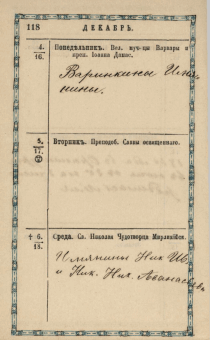 118
ДЕКАБРЬ.
4.
16.
Понедѣльникъ. Вел. муч-цы Варвары и
преп. Іоанна Дамас.
Варинкины Имя-
нины.
5.
17.
Вторникъ. Преподоб. Саввы освященнаго.
† 6.
18.
Среда. Св. Николая Чудотворца Мирликійск.
Имянины Ник Ив.
и Ник. Ник. Аѳанасьева